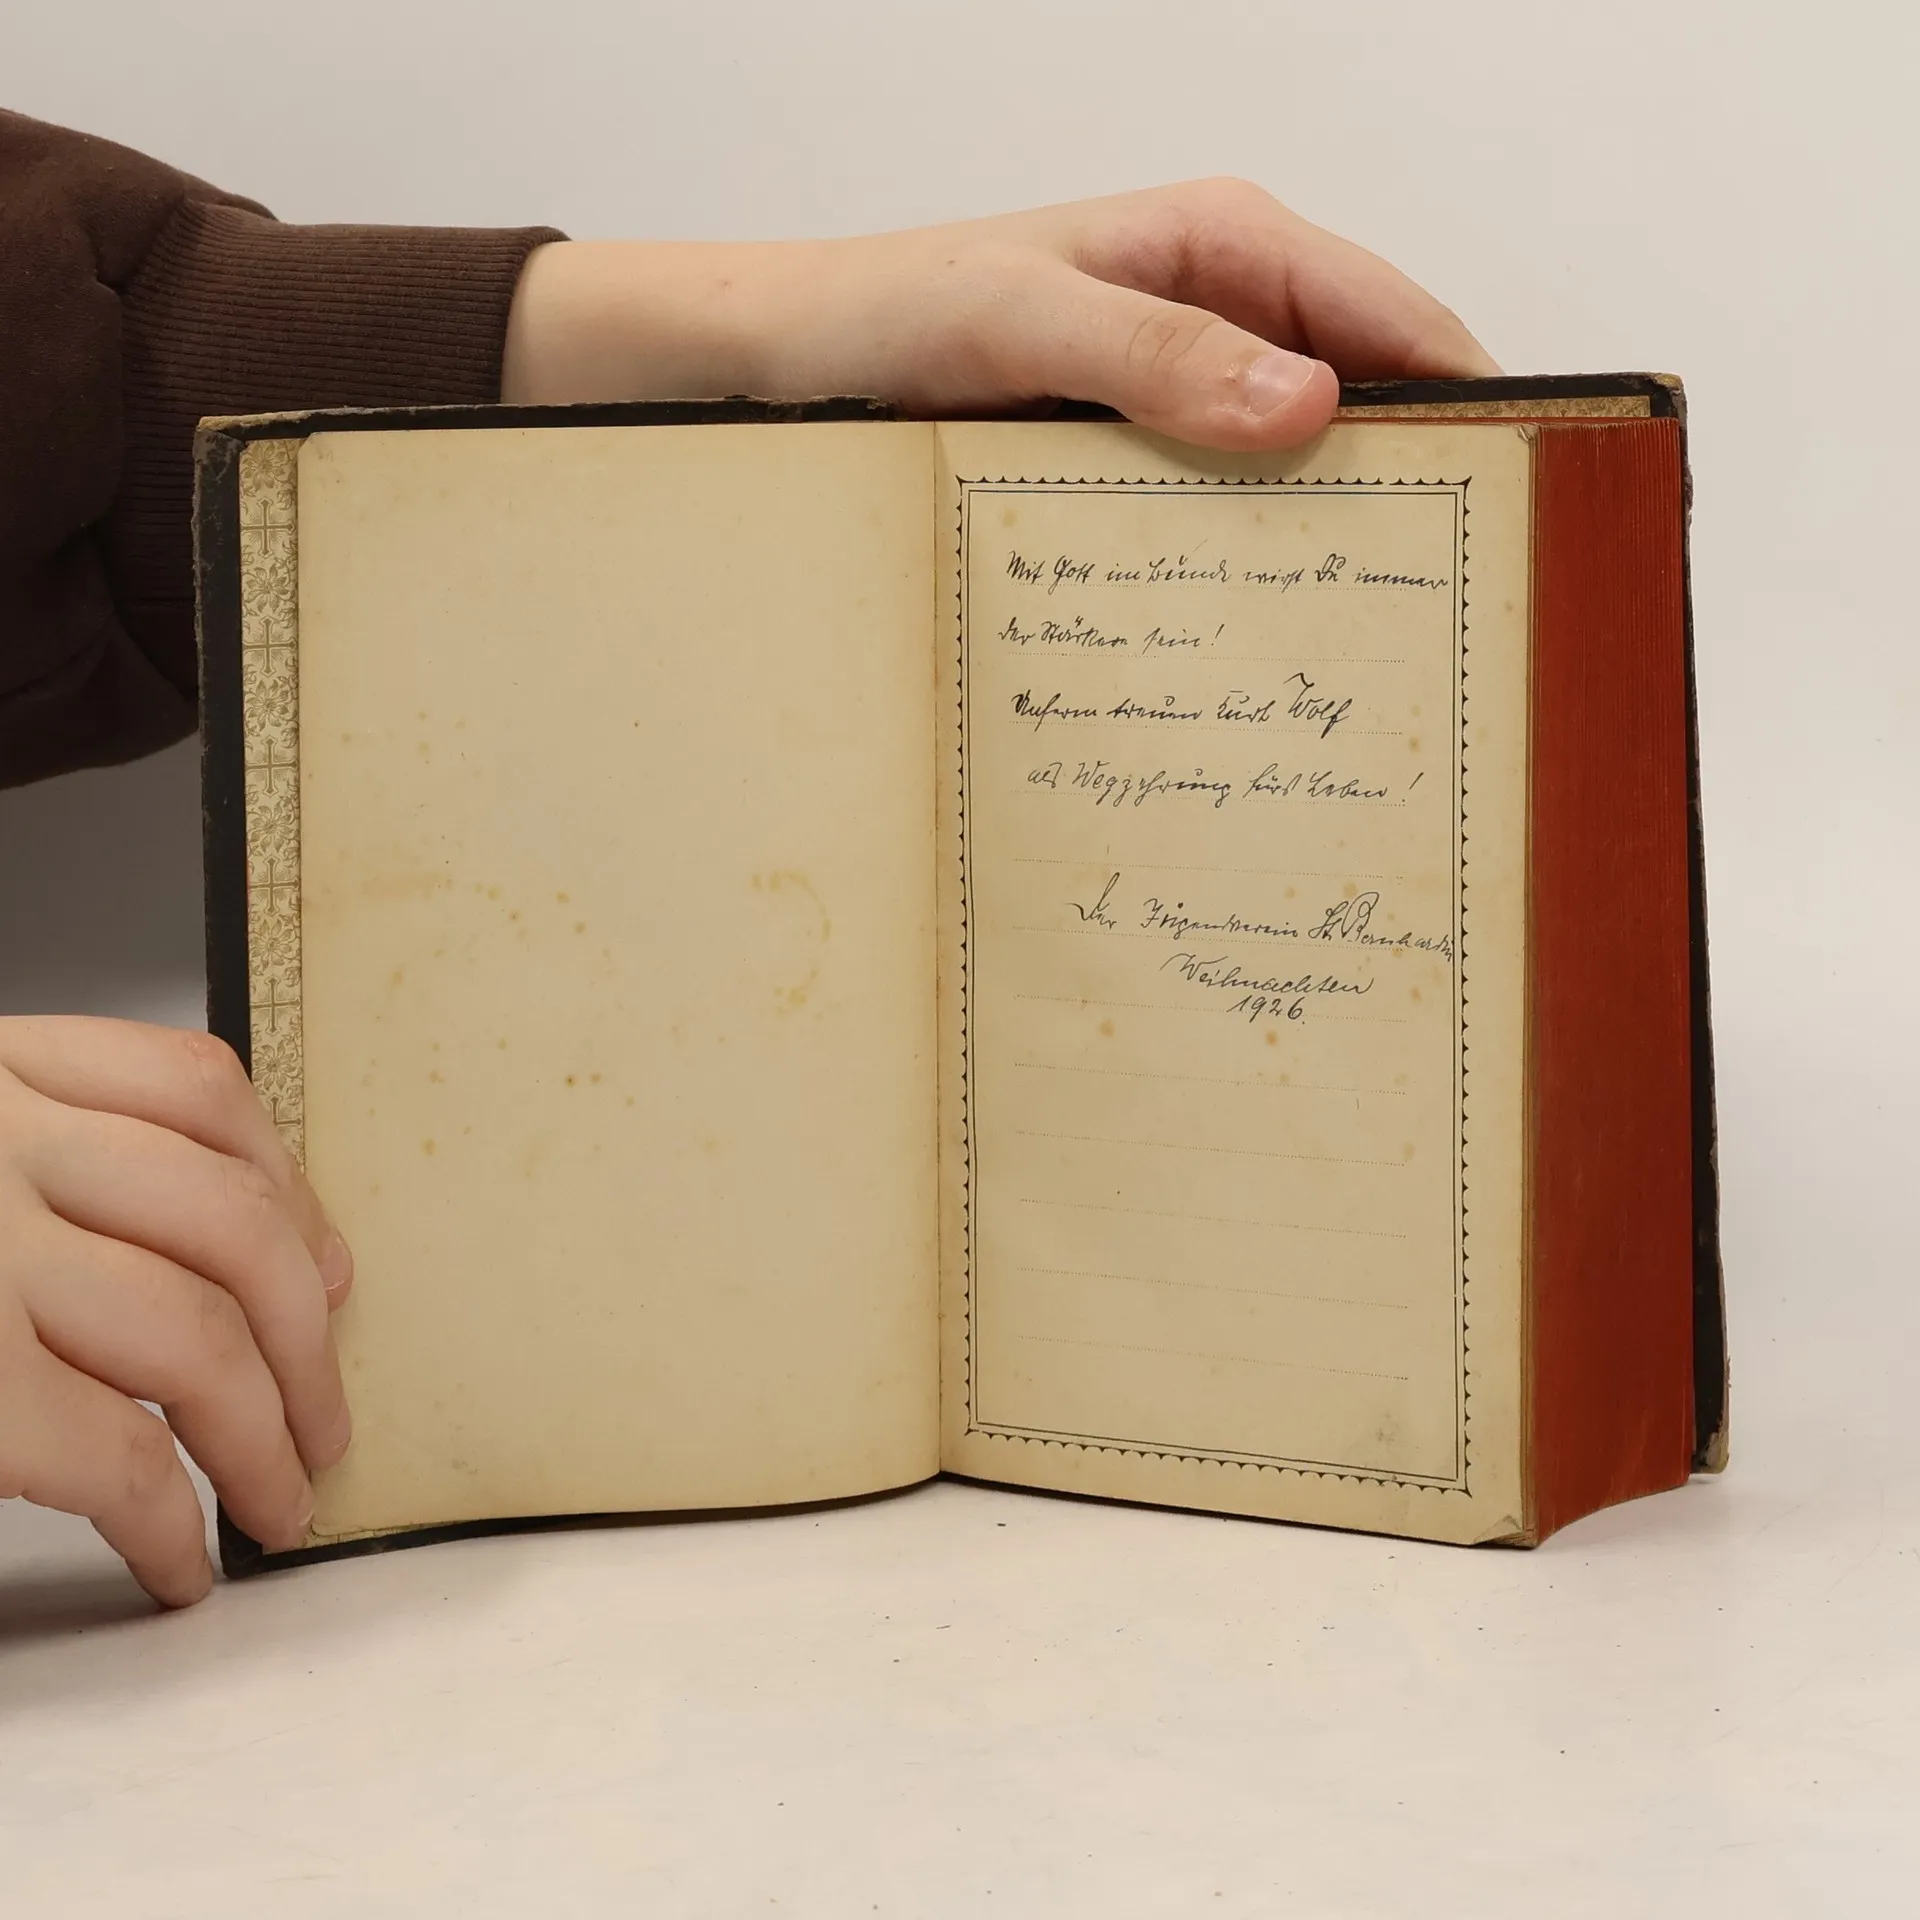 Mit Gott im Bunde wirst Du immer
der Stärkere sein!
Unserm treuen Kurt Wolf
als Wegzehrung fürs Leben!
Der Jugendverein St. Bernhardin
Weihnachten
1926.